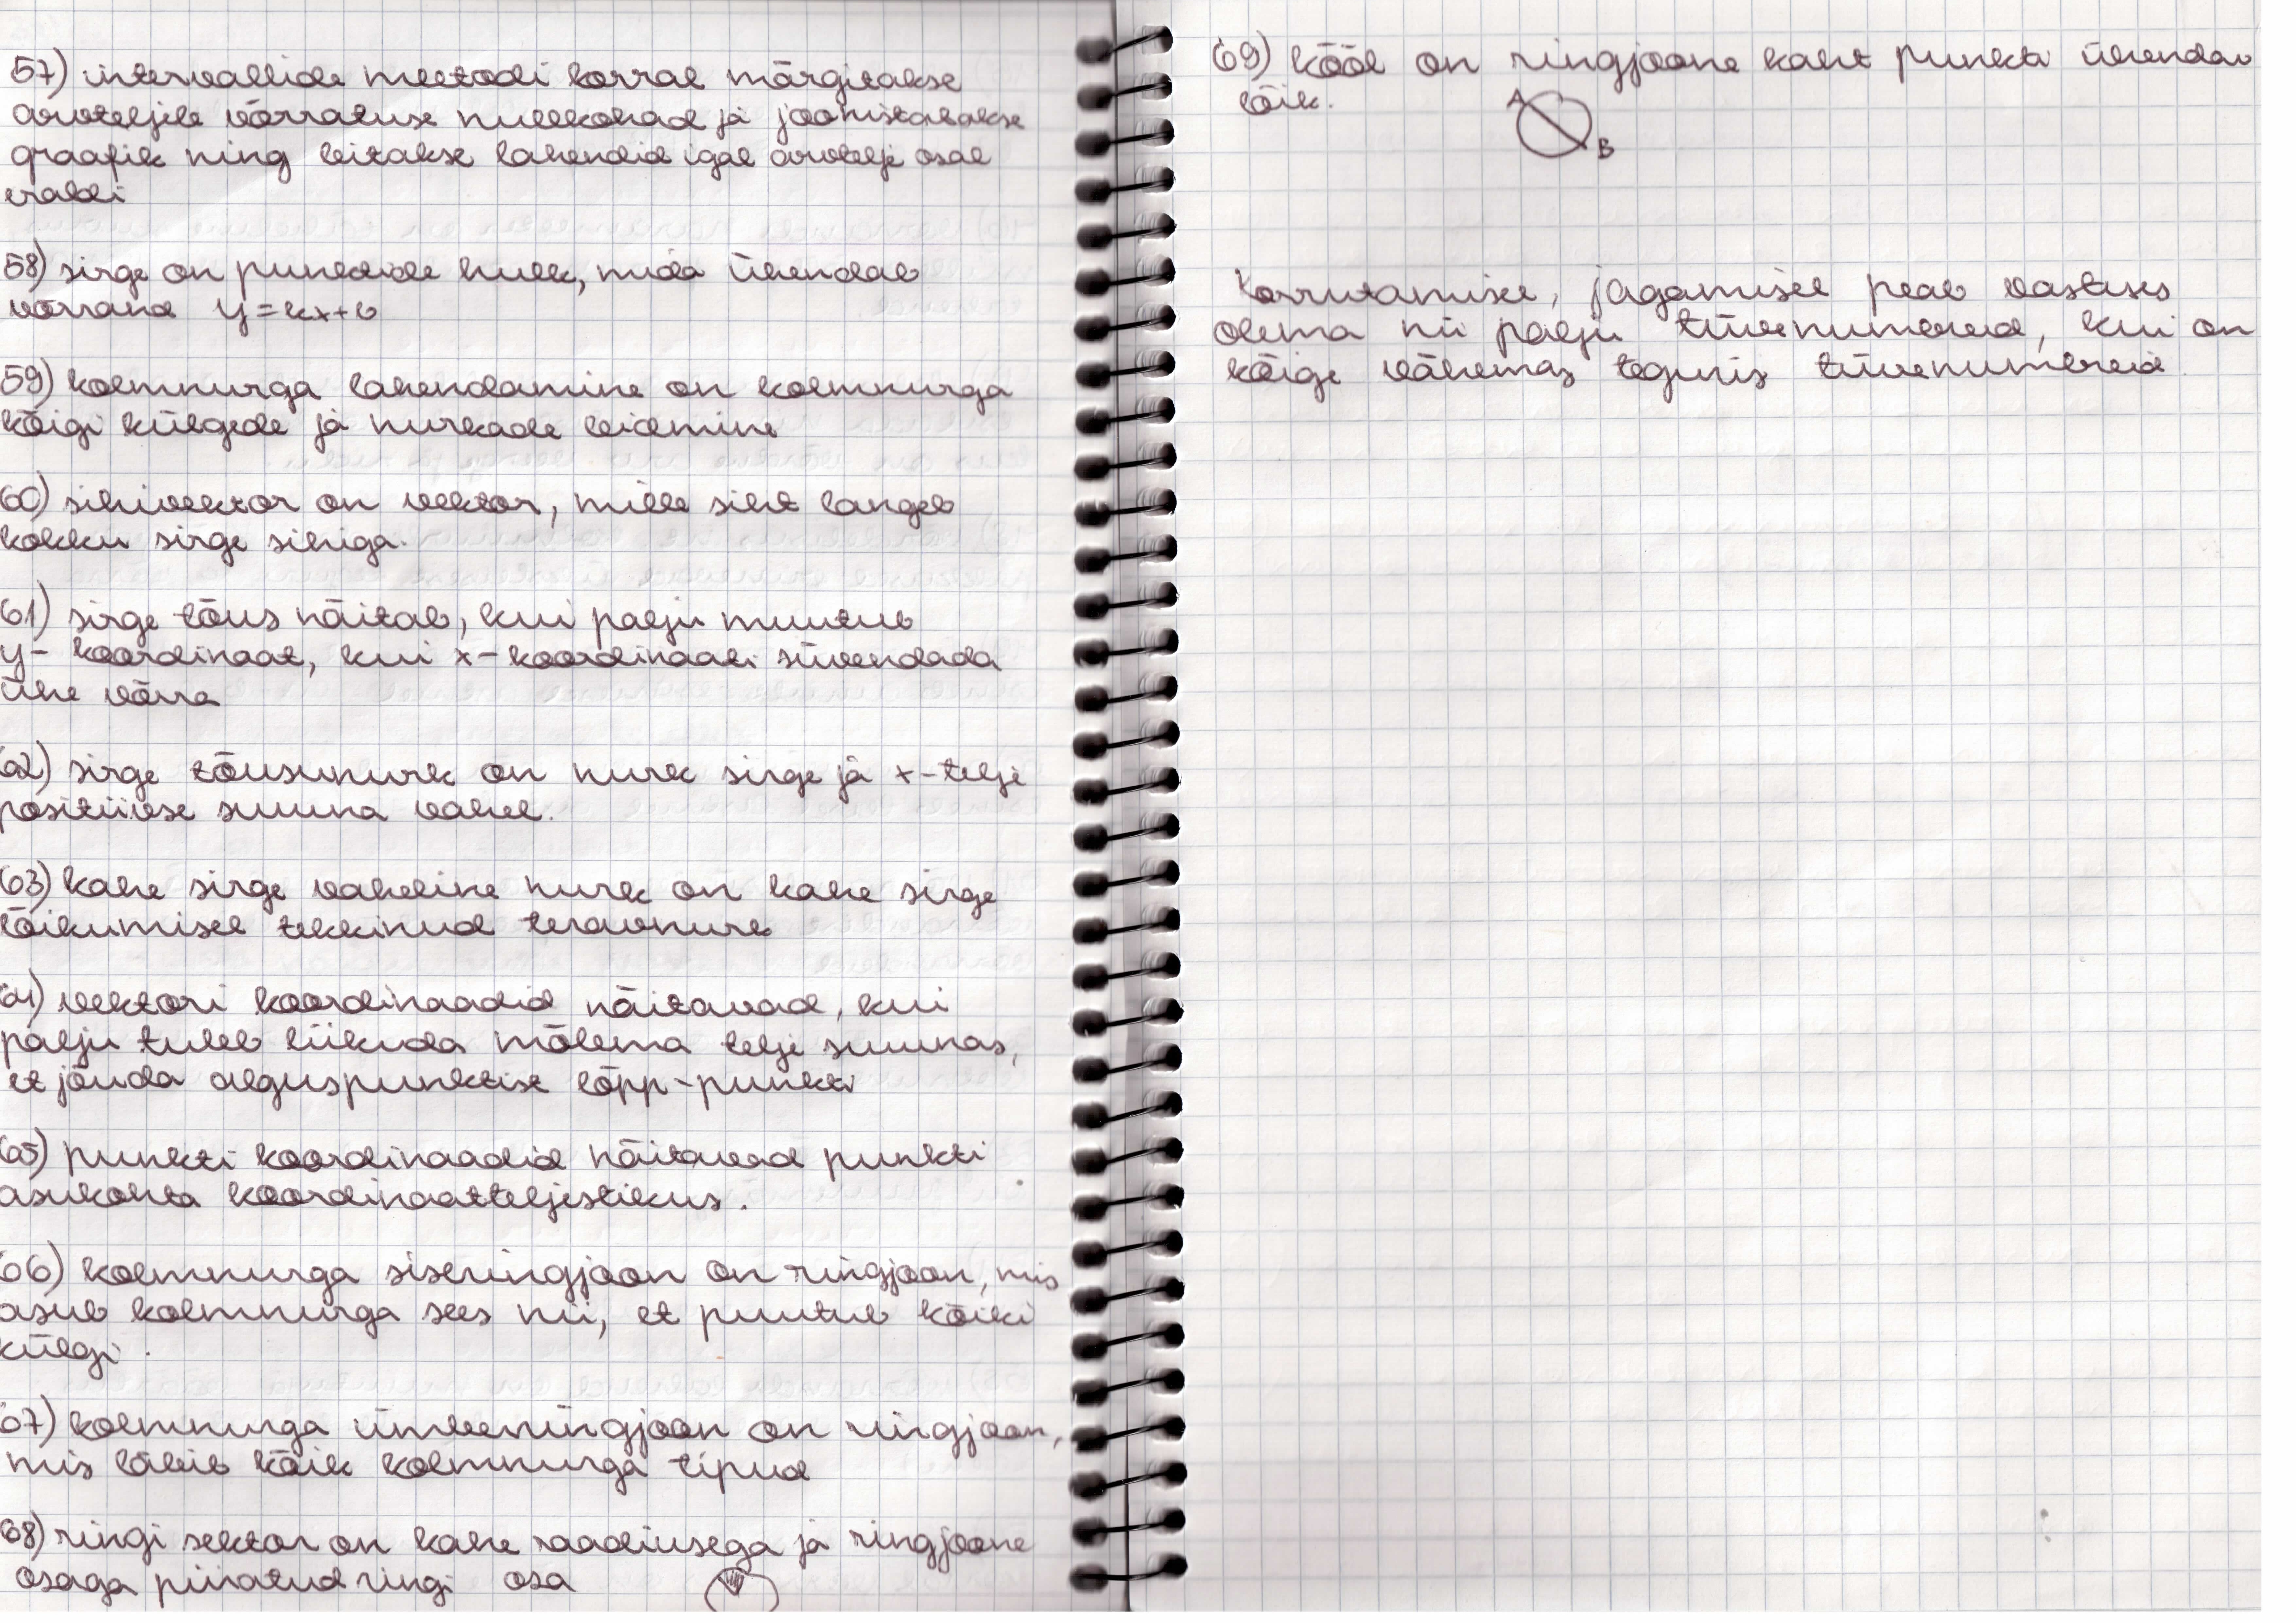 57) intervallide meetodi korral märgitakse
arvteljele võrratuse nullkohad ja joonistatakse
graafik ning leitakse lahendid igal arvtelje osal
eraldi
58) sirge on punktide hulk, mida ühendab
võrrand y=kx+b
59) kolmnurga lahendamine on kolmnurga
kõigi külgede ja nurkade leidmine
60) sihivektor on vektor, mille siht langeb
kokku sirge sihiga.
61) sirge tõus näitab, kui palju muutub
y- koordinaat, kui x-koordinaati suurendada
ühe võrra
62) sirge tõusunurk on nurk sirge ja x-telje
positiivse suuna vahel.
63) kahe sirge vaheline nurk on kahe sirge
lõikumisel tekkinud teravnurk
64) vektori koordinaadid näitavad, kui
palju tuleb liikuda mõlema telje suunas,
et jõuda alguspunktist lõpp-punkti
65) punkti koordinaadid näitavad punkti
asukohta koordinaatteljestikus.
66) kolmnurga siseringjoon on ringjoon, mis
asub kolmnurga sees nii, et puutub kõiki
külgi.
67) kolmnurga ümberringjoon on ringjoon,
mis läbib kõik kolmnurga tipud
68) ringi sektor on kahe raadiusega ja ringjoone
osaga piiratud ringi osa
69) kõõl on ringjoone kaht punkti ühendav
lõik.
A
B
Korrutamisel, jagamisel peab vastuses
olema nii palju tüvenumbreid, kui on
kõige vähemas teguris tüvenumbreid